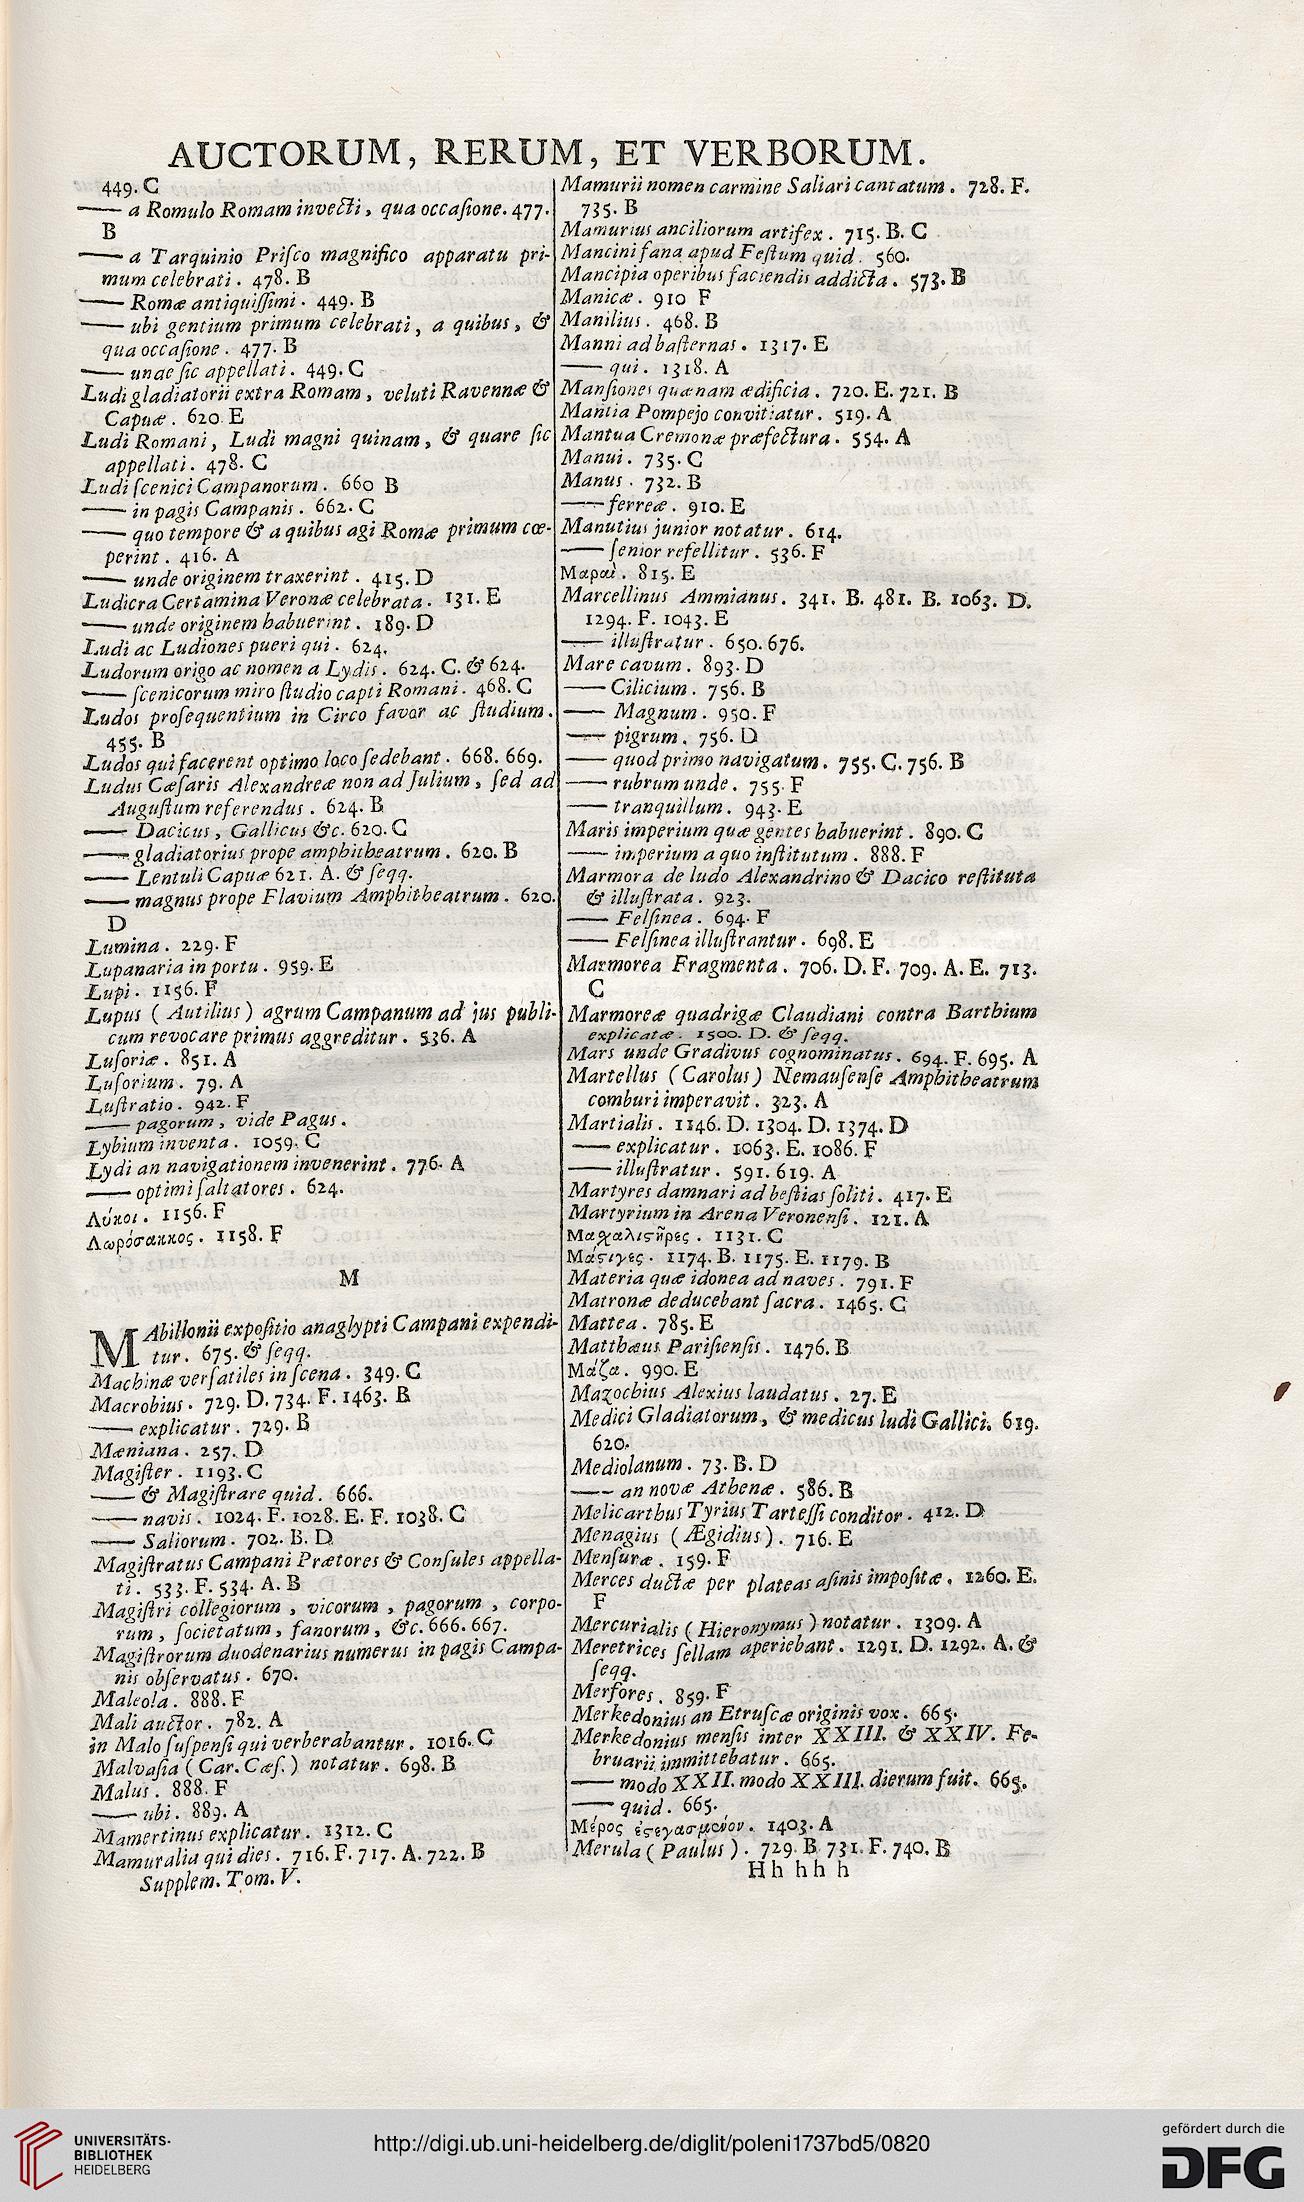 AUCTORUM, RERUM, ET VERBORUM.
449. C
—— a Romulo Romam invecti, qua occaſione. 477.
B
—— a Tarquinio Priſco magnifico apparatu pri-
mum celebrati. 478. B
—— Romæ antiquiſſimi. 449. B
—— ubi gentium primum celebrati, a quibus, &
qua occaſione. 477. B
—— unde ſic appellati. 449. C
Ludi gladiatorii extra Romam, veluti Ravennæ &
Capuæ. 620 E
Ludi Romani, Ludi magni quinam, & quare ſic
appellati. 478. C
Ludi ſcenici Campanorum. 660 B
—— in pagis Campanis. 662. C
—— quo tempore & a quibus agi Romæ primum cœ-
perint. 416. A
—— unde originem traxerint. 415. D
Ludicra Certamina Veronæ celebrata. 131. E
—— unde originem habuerint. 189. D
Ludi ac Ludiones pueri qui. 624.
Ludorum origo ac nomen a Lydis. 624. C. & 624.
—— ſcenicorum miro ſtudio capti Romani. 468. C
Ludos proſequentium in Circo favor ac ſtudium.
455. B
Ludos qui facerent optimo loco ſedebant. 668. 669.
Ludus Cæſaris Alexandreæ non ad Julium, ſed ad
Auguſtum referendus. 624. B
—— Dacicus, Gallicus &c. 620. C
—— gladiatorius prope amphitheatrum. 620. B
—— Lentuli Capuæ 621. A. & ſeqq.
—— magnus prope Flavium Amphitheatrum. 620.
D
Lumina. 229. F
Lupanaria in portu. 959. E
Lupi. 1156. F
Lupus (Autilius) agrum Campanum ad jus publi-
cum revocare primus aggreditur. 536. A
Luſoriæ. 851. A
Luſorium. 79. A
Luſtratio. 942. F
—— pagorum, vide Pagus.
Lybium inventa. 1059. C
Lydi an navigationem invenerint. 776. A
—— optimi ſaltatores. 624.
Λύκοι. 1156. F
Λωρόσακκος. 1158. F
M
MAbillonii expoſitio anaglypti Campani expendi-
tur. 675. & ſeqq.
Machinæ verſatiles in ſcena. 349. C
Macrobius. 729. D. 734. F. 1463. B
—— explicatur. 729. B
Mæniana. 257. D
Magiſter. 1193. C
—— & Magiſtrare quid. 666.
—— navis. 1024. F. 1028. E. F. 1038. C
—— Saliorum. 702. B. D
Magiſtratus Campani Prætores & Conſules appella-
ti. 533. F. 534. A. B
Magiſtri collegiorum, vicorum, pagorum, corpo-
rum, ſocietatum, fanorum, &c. 666. 667.
Magiſtrorum duodenarius numerus in pagis Campa-
nis obſervatus. 670.
Maleola. 888. F
Mali auctor. 782. A
in Malo ſuſpenſi qui verberabantur. 1016. C
Malvaſia (Car. Cæſ.) notatur. 698. B
Malus. 888. F
—— ubi. 889. A
Mamertinus explicatur. 1312. C
Mamuralia qui dies. 716. F. 717. A. 722. B
Supplem. Tom. V.
Mamurii nomen carmine Saliari cantatum. 728. F.
735. B
Mamurius anciliorum artifex. 715. B. C
Mancini fana apud Feſtum quid. 560.
Mancipia operibus faciendis addicta. 573. B
Manicæ. 910 F
Manilius. 468. B
Manni ad baſternas. 1317. E
—— qui. 1318. A
Manſiones quænam ædificia. 720. E. 721. B
Mantia Pompejo convitiatur. 519. A
Mantua Cremonæ præfectura. 554. A
Manui. 735. C
Manus. 732. B
—— ferreæ. 910. E
Manutius junior notatur. 614.
—— ſenior refellitur. 536. F
Μαραὶ. 815. E
Marcellinus Ammianus. 341. B. 481. B. 1063. D.
1294. F. 1043. E
—— illuſtratur. 650. 676.
Mare cavum. 893. D
—— Cilicium. 756. B
—— Magnum. 950. F
—— pigrum. 756. D
—— quod primo navigatum. 755. C. 756. B
—— rubrum unde. 755. F
—— tranquillum. 943. E
Maris imperium quæ gentes habuerint. 890. C
—— imperium a quo inſtitutum. 888. F
Marmora de ludo Alexandrino & Dacico reſtituta
& illuſtrata. 923.
—— Felſinea. 694. F
—— Felſinea illuſtrantur. 698. E
Marmorea Fragmenta. 706. D. F. 709. A. E. 713.
C
Marmoreæ quadrigæ Claudiani contra Barthium
explicatæ. 1500. D. & ſeqq.
Mars unde Gradivus cognominatus. 694. F. 695. A
Martellus (Carolus) Nemauſenſe Amphitheatrum
comburi imperavit. 323. A
Martialis. 1146. D. 1304. D. 1374. D
—— explicatur. 1063. E. 1086. F
—— illuſtratur. 591. 619. A
Martyres damnari ad beſtias ſoliti. 417. E
Martyrium in Arena Veronenſi. 121. A
Μαχαλιϛῆρες. 1131. C
Μάϛιγες. 1174. B. 1175. E. 1179. B
Materia quæ idonea ad naves. 791. F
Matronæ deducebant ſacra. 1465. C
Mattea. 785. E
Matthæus Pariſienſis. 1476. B
Μάζα. 990. E
Mazochius Alexius laudatus. 27. E
Medici Gladiatorum, & medicus ludi Gallici. 619.
620.
Mediolanum. 73. B. D
—— an novæ Athenæ. 586. B
Melicarthus Tyrius Tarteſſi conditor. 412. D
Menagius (Ægidius). 716. E
Menſuræ. 159. F
Merces ductæ per plateas aſinis impoſitæ. 1260. E.
F
Mercurialis (Hieronymus) notatur. 1309. A
Meretrices ſellam aperiebant. 1291. D. 1292. A. &
ſeqq.
Merſores. 859. F
Merkedonius an Etruſcæ originis vox. 665.
Merkedonius menſis inter XXIII. & XXIV. Fe-
bruarii immittebatur. 665.
—— modo XXII. modo XXIII. dierum fuit. 665.
—— quid. 665.
Μέρος ἐϛεγασμένον. 1403. A
Merula (Paulus). 729. B 731. F. 740. B
Hh hh h
UNIVERSITÄTS-
BIBLIOTHEK
HEIDELBERG
http://digi.ub.uni-heidelberg.de/diglit/poleni1737bd5/0820
gefördert durch die
DFG